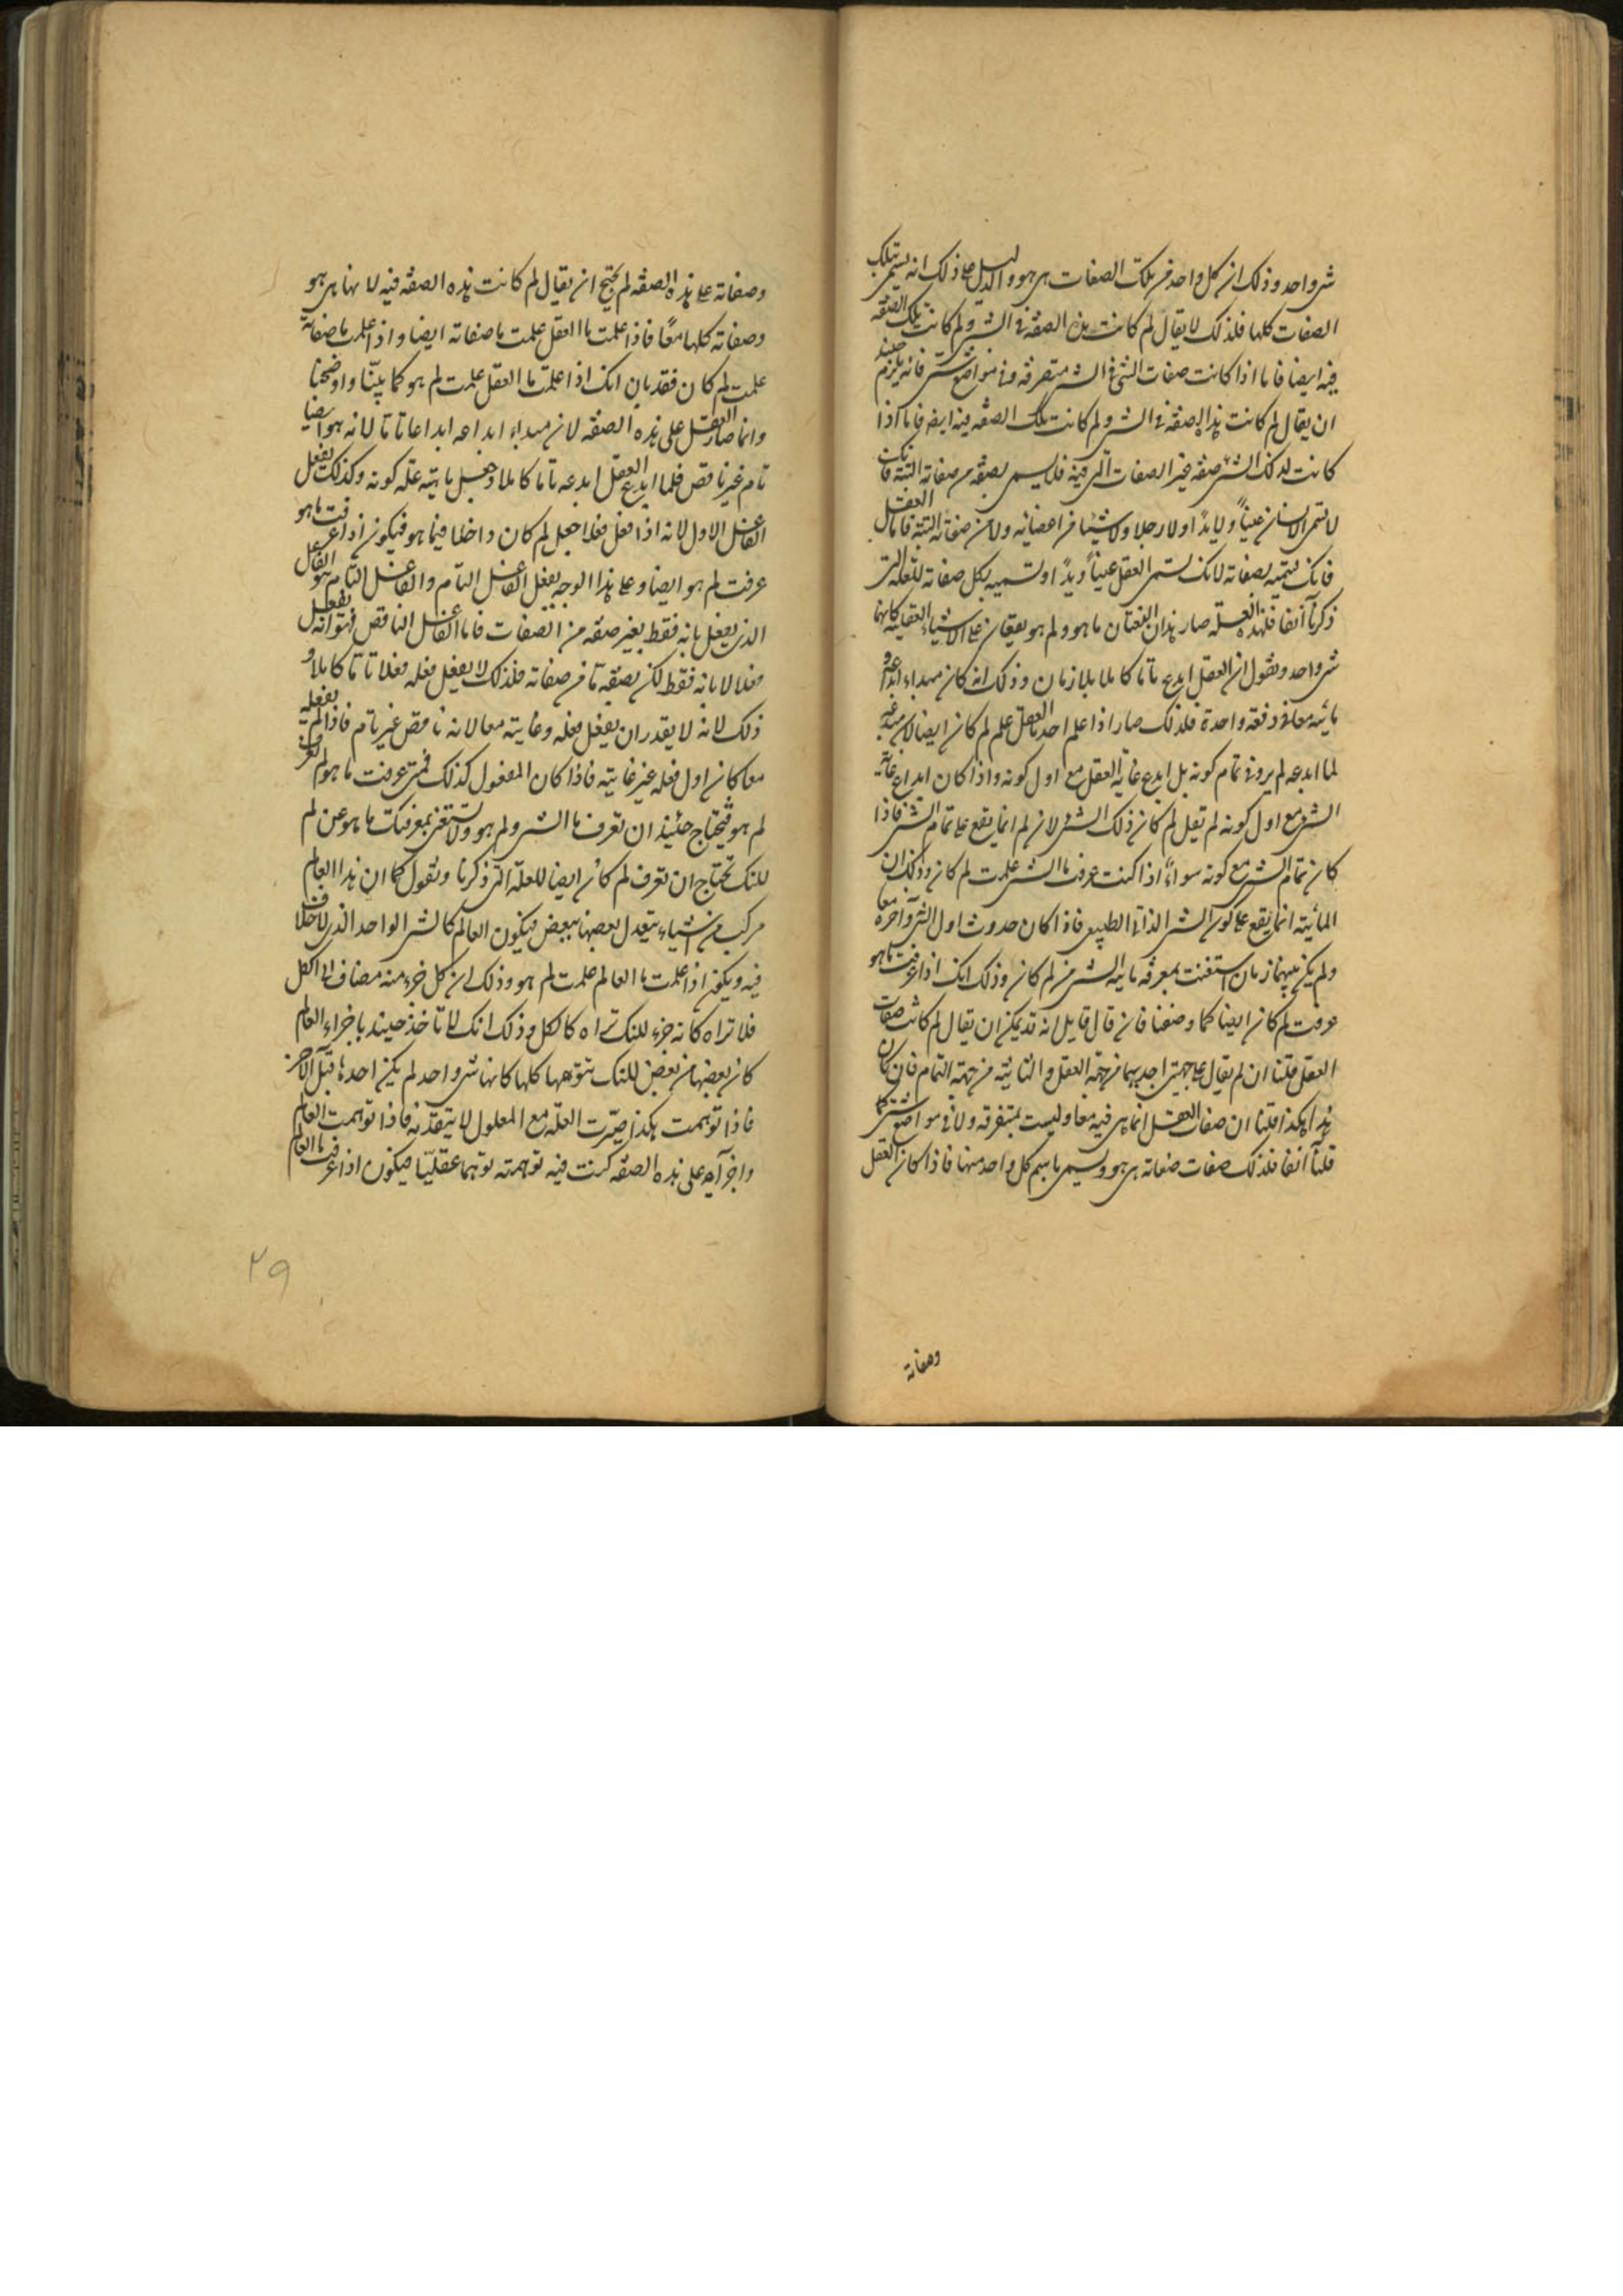 شئ واحد وذلك ان كل واحد من تلك الصفات هى هو والدليل على ذلك انه يسمى بتلك
الصفات كلها فلذلك لا يقال لم كانت هذه الصفة فى الشئ ولم كانت تلك الصفة
فيه ايضا فاما اذا كانت صفات الشئ فى الشئ متفرقة وفى مواضع شتى فانه يلزم حينئذ
ان يقال لم كانت هذه الصفة فى الشئ ولم كانت تلك الصفة فيه ايضا فاما اذا
كانت لذلك الشئ صفة غير الصفات التى فيه فلا يسمى بصفة من صفاته البتة فانك
لا تسمى الانسان عيناً ولا يداً ولا رجلا ولا شيئا من اعضائه ولا من صفاته البتة فاما العقل
فانك تسميه بصفاته لانك تسمى العقل عيناً ويداً وتسميه بكل صفاته للعلة التى
ذكرنا آنفا فلهذه العلة صار هذان النعتان ما هو ولم هو يقعان على الاشياء العقلية كانها
شئ واحد ونقول ان العقل ابدع تاما كاملا بلا زمان وذلك انه كان مبداء ابداعه و
مائيته معا فى دفعة واحدة فلذلك صار اذا علم احد ما العقل علم لم كان ايضا لان مبدعه
لما ابدعه لم يرو فى تمام كونه بل ابدع غاية العقل مع اول كونه واذا كان ابداع غاية
الشئ مع اول كونه لم تقل لم كان ذلك الشئ لان لم انما يقع على تمام الشئ فاذا
كان تمام الشئ مع كونه سواءً اذا كنت عرفت ما الشئ علمت لم كان وذلك ان
المائية انما يقع على كون الشئ الذاتى الطبيعى فاذا كان حدوث اول الشئ وآخره معا
ولم يكن بينهما زمان استغنيت بمعرفة مائية الشئ من لم كان وذلك انك اذا عرفت ما هو
عرفت لم كان ايضا كما وصفنا فان قال قايل انه قد يمكن ان يقال لم كانت صفات
العقل قلنا ان لم يقال على جهتين احديهما من جهة العقل والثانية من جهة التمام فان كان
هذا هكذا قلنا ان صفات العقل انما هى فيه معا وليست بمتفرقة ولا فى مواضع شتى كما
قلنا آنفا فلذلك صفات صفاته هى هو ويسمى باسم كل واحد منها فاذا كان العقل
وصفاته
وصفاته على هذه الصفة لم يحتج ان يقال لم كانت هذه الصفة فيه لانها هى هو
وصفاته كلها معًا فاذا علمت ما العقل علمت ما صفاته ايضا واذا علمت ما صفاته
علمت لم كان فقد بان انك اذا علمت ما العقل علمت لم هو كما بيّنا واوضحنا
وانما صار العقل على هذه الصفة لان مبداء ابداعه ابداعا تاما لانه هو ايضا
تام غير ناقص فلما ابدع العقل ابدعه تاما كاملا وجعل مائيته علة كونه وكذلك يفعل
الفاعل الاول لانه اذا فعل فعلا جعل لم كان داخلا فيما هو فيكون اذا عرفت ما هو
عرفت لم هو ايضا وعلى هذا الوجه يفعل الفاعل التام والفاعل التام هو الفاعل
الذى يفعل بانه فقط بغير صفة من الصفات فاما الفاعل الناقص فهو انه يفعل
فعلا لا بانه فقط لكن بصفة ما من صفاته فلذلك لا يفعل فعله فعلا تاما كاملا و
ذلك لانه لا يقدر ان يفعل فعله وغايته معا لانه ناقص غير تام فاذا لم يفعله
معا كان اول فعله غير غايته فاذا كان المفعول كذلك فمتى عرفت ما هو لم تعرف
لم هو فيحتاج حينئذ ان تعرف ما الشئ ولم هو ولا تستغنى بمعرفتك ما هو عن لم
للنك تحتاج ان تعرف لم كان ايضا للعلة التى ذكرنا ونقول كما ان هذا العالم
مركب من اشياء يتعدل بعضها ببعض فيكون العالم كالشئ الواحد الذى لا خلاف
فيه ويكون اذا علمت ما العالم علمت لم هو وذلك ان كل جزء منه مضاف الى الكل
فلا تراه كانه جزء للنك تراه كالكل وذلك انك لا تاخذ حينئذ باجزاء العالم
كان بعضها من بعض للنك تتوهمها كلها كانها شئ واحد لم يكن احدها قبل الآخر
فاذا توهمت هكذا صيّرت العلّة مع المعلول لا يتقدّمه فاذا توهمت العالم
واجزآءه على هذه الصفة كنت فيه توهمته توهما عقليّا فيكون اذا عرفت ما العالم
٢٩